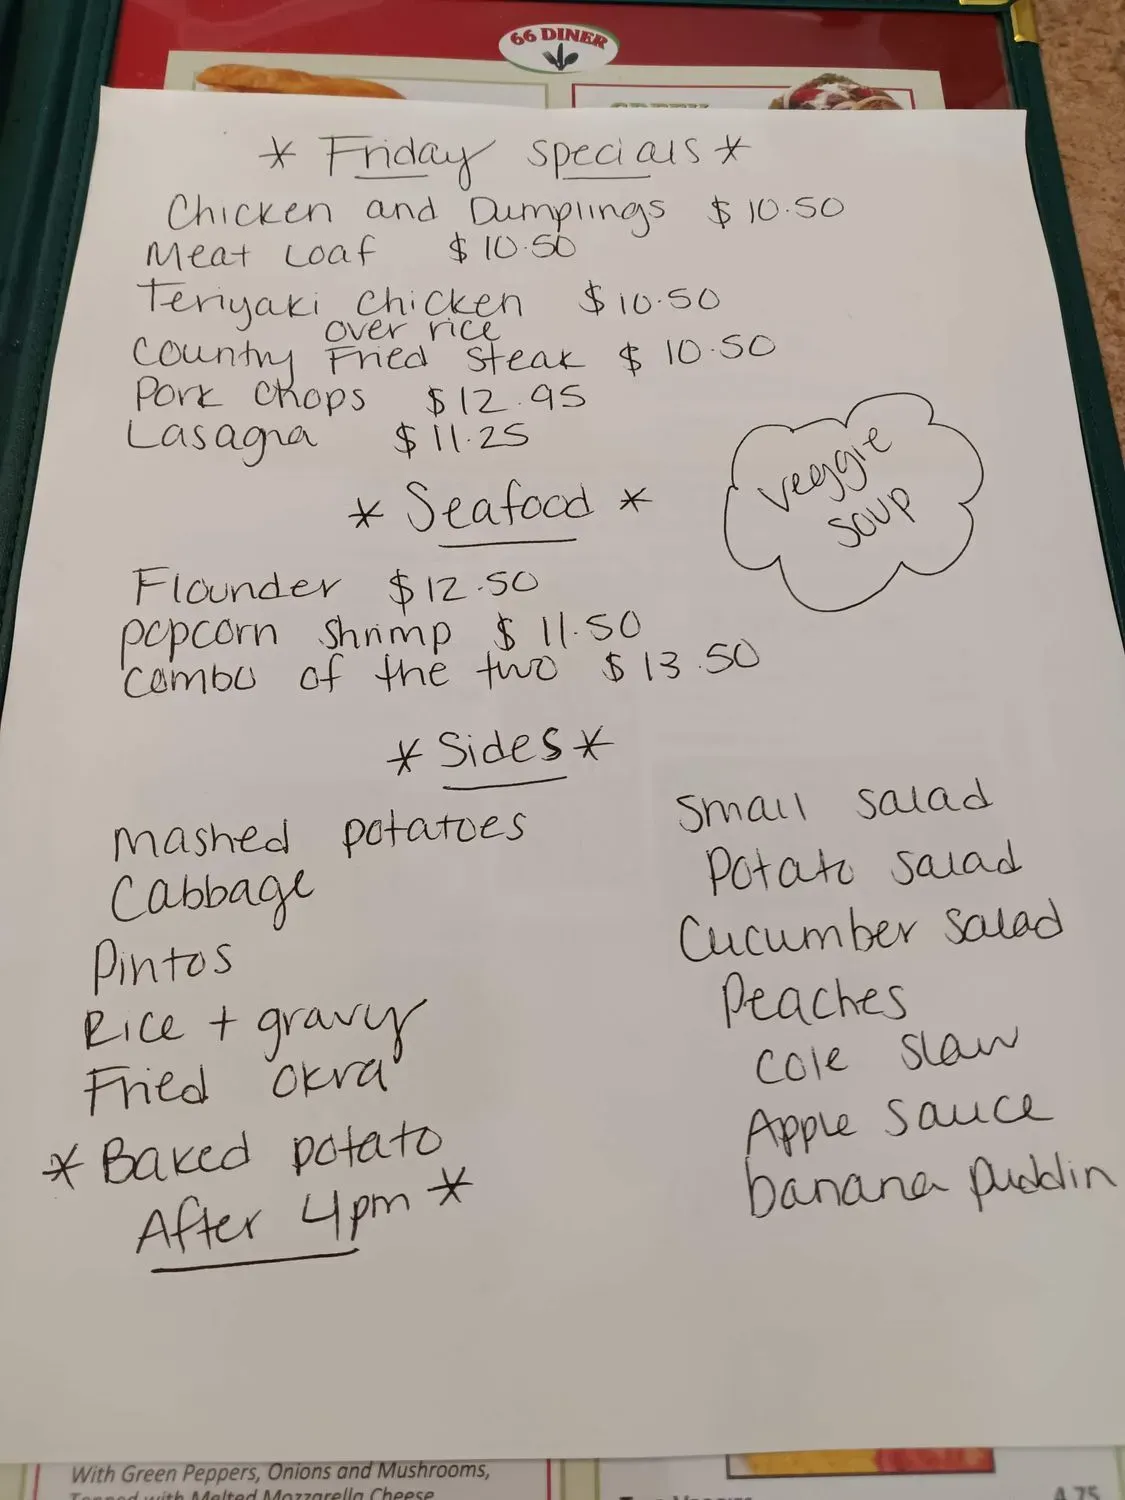 66 DINER
* Friday specials *
Chicken and Dumplings $10.50
Meat Loaf $10.50
Teriyaki Chicken $10.50
over rice
Country Fried Steak $10.50
Pork Chops $12.95
Lasagna $11.25
veggie
soup
* Seafood *
Flounder $12.50
popcorn shrimp $11.50
combo of the two $13.50
* Sides *
mashed potatoes
Cabbage
Pintos
Rice + gravy
Fried okra
* Baked potato
After 4pm *
Small salad
Potato salad
Cucumber salad
Peaches
Cole slaw
Apple sauce
banana puddin
With Green Peppers, Onions and Mushrooms,
Topped with Melted Mozzarella Cheese